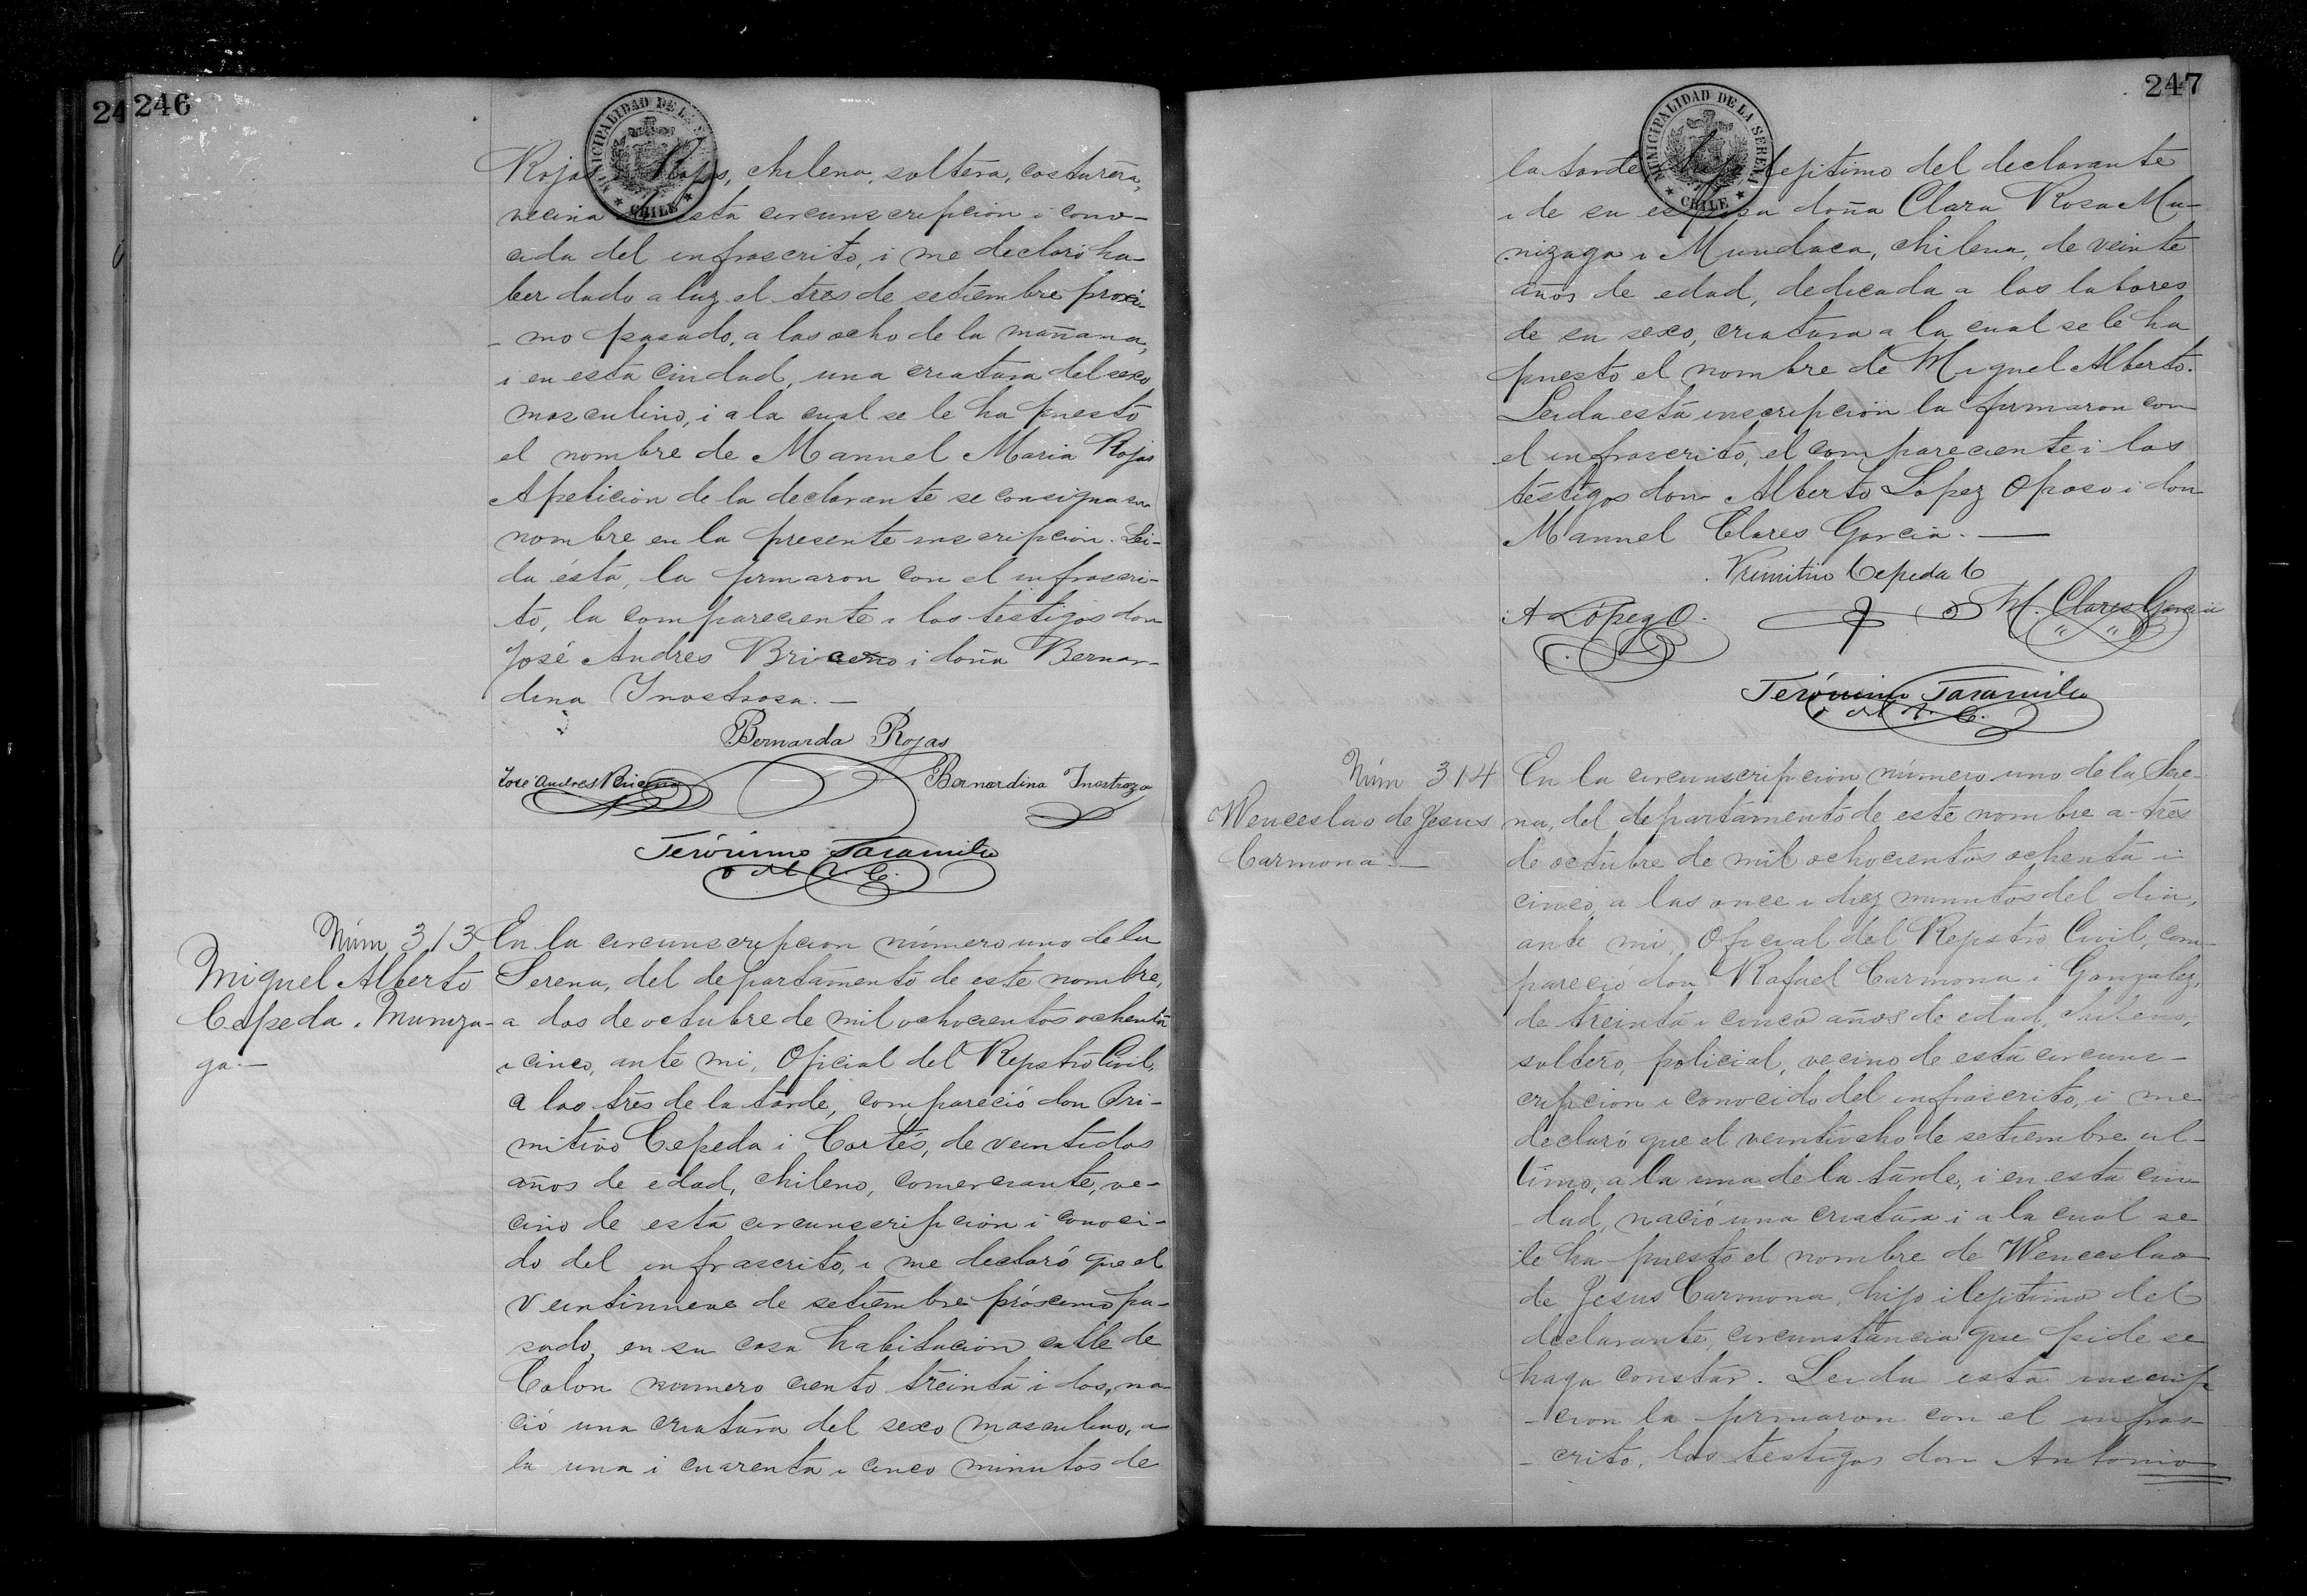 246
MUNICIPALIDAD DE LA SERENA
CHILE
Rojas i Rojas, chilena, soltera, costurera,
vecina de esta circunscripcion i cono-
cida del infrascrito, i me declaró ha
ber dado a luz el tres de setiembre próxi-
-mo pasado, a las ocho de la mañana,
i en esta ciudad, una criatura del sexo
masculino, i a la cual se le ha puesto
el nombre de Manuel Maria Rojas
A peticion de la declarante se consigna su
nombre en la presente inscripcion. Lei-
da ésta, la firmaron con el infrascri-
to, la compareciente i los testigos don
José Andres Briceño i doña Bernar-
dina Inostrosa.—
Bernarda Rojas
José Andres Briceño
Bernardina Inostroza
Jerónimo Jaramillo
O del R. C.
Núm 313
Miguel Alberto
Cepeda i Muniza-
ga.—
En la circunscripcion número uno de la
Serena, del departamento de este nombre,
a dos de octubre de mil ochocientos ochenta
i cinco, ante mi, Oficial del Rejistro Civil,
a las tres de la tarde, compareció don Pri-
mitivo Cepeda i Cortés, de veintidos
años de edad, chileno, comerciante, ve-
cino de esta circunscripcion i conoci-
do del infrascrito, i me declaró que el
veintinueve de setiembre próximo pa-
sado, en su casa habitacion calle de
Colon numero ciento treinta i dos, na-
ció una criatura del sexo masculino, a
la una i cuarenta i cinco minutos de
247
MUNICIPALIDAD DE LA SERENA
CHILE
la tarde, hijo lejitimo del declarante
i de su esposa doña Clara Rosa Mu-
nizaga i Mundaca, chilena, de veinte
años de edad, dedicada a las labores
de su sexo, criatura a la cual se le ha
puesto el nombre de Miguel Alberto.
Leida esta inscripcion la firmaron con
el infrascrito, el compareciente i los
testigos don Alberto Lopez Opaso i don
Manuel Clares Garcia.—
Primitivo Cepeda C
A Lopez O.
M. Clares Garcia
Jerónimo Jaramillo
O del R. C.
Núm 314
Wenceslao de Jesus
Carmona.—
En la circunscripcion número uno de la Sere-
na, del departamento de este nombre a tres
de octubre de mil ochocientos ochenta i
cinco, a las once i diez minutos del dia,
ante mi, Oficial del Rejistro Civil, com-
pareció don Rafael Carmona i Gonzalez,
de treinta i cinco años de edad, chileno,
soltero, policial, vecino de esta circuns-
cripcion i conocido del infrascrito, i me
declaró que el veintiocho de setiembre úl-
timo, a la una de la tarde, i en esta ciu
-dad, nació una criatura i a la cual se
le ha puesto el nombre de Wenceslao
de Jesus Carmona, hijo ilejitimo del
declarante, circunstancia que pide se
haga constar. Leida esta inscrip
-cion la firmaron con el infras-
-crito, los testigos don Antonio